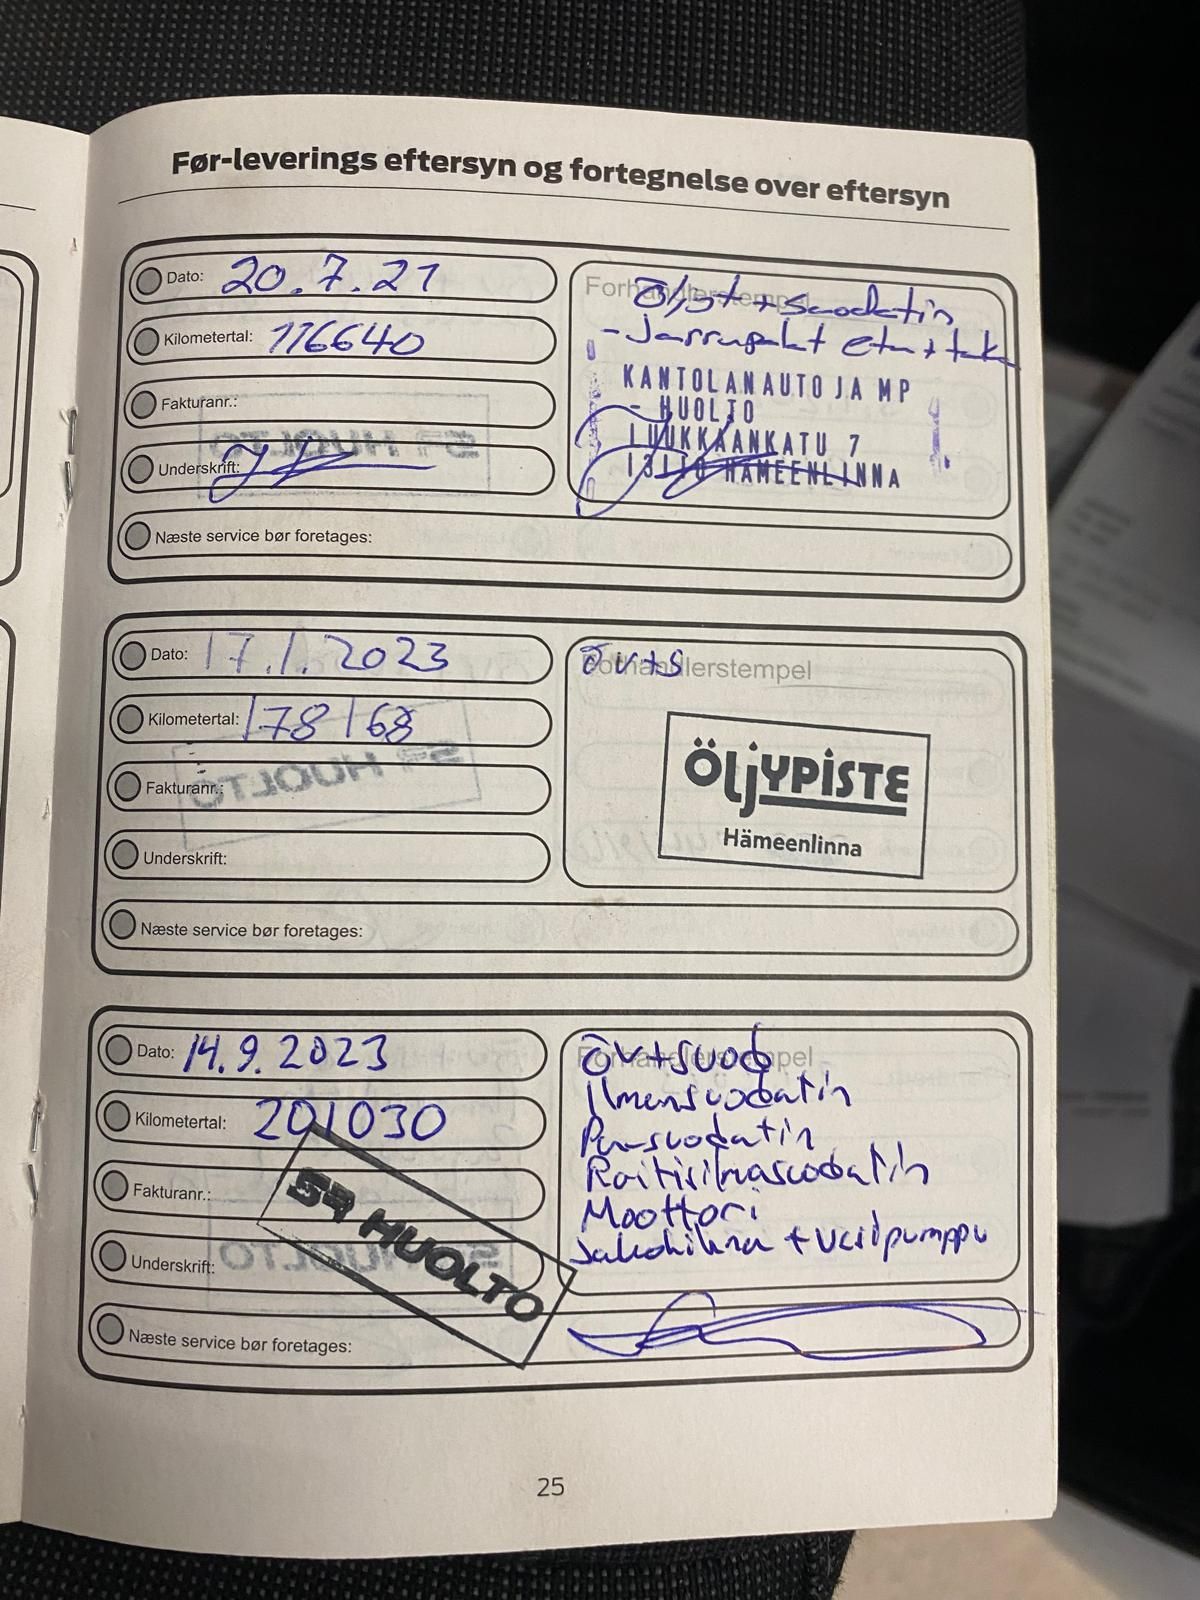 Før-leverings eftersyn og fortegnelse over eftersyn
Dato: 20.7.21
Kilometertal: 116640
Fakturanr.:
Underskrift:
Næste service bør foretages:
Forhandlerstempel
Öljyt + suodatin
- Jarrupalat etu + taka
KANTOLANAUTO JA MP
- HUOLTO
LUUKKAANKATU 7
13110 HÄMEENLINNA
Dato: 17.1.2023
Kilometertal: 178168
Fakturanr.:
Underskrift:
Næste service bør foretages:
Forhandlerstempel
öv+s
ÖLJYPISTE
Hämeenlinna
Dato: 14.9.2023
Kilometertal: 201030
Fakturanr.:
Underskrift:
Næste service bør foretages:
HUOLTO
Forhandlerstempel
öv+suod
Ilmansuodatin
Pa-suodatin
Raitisilmasuodatin
Moottori
Jakohihna + vesipumppu
25